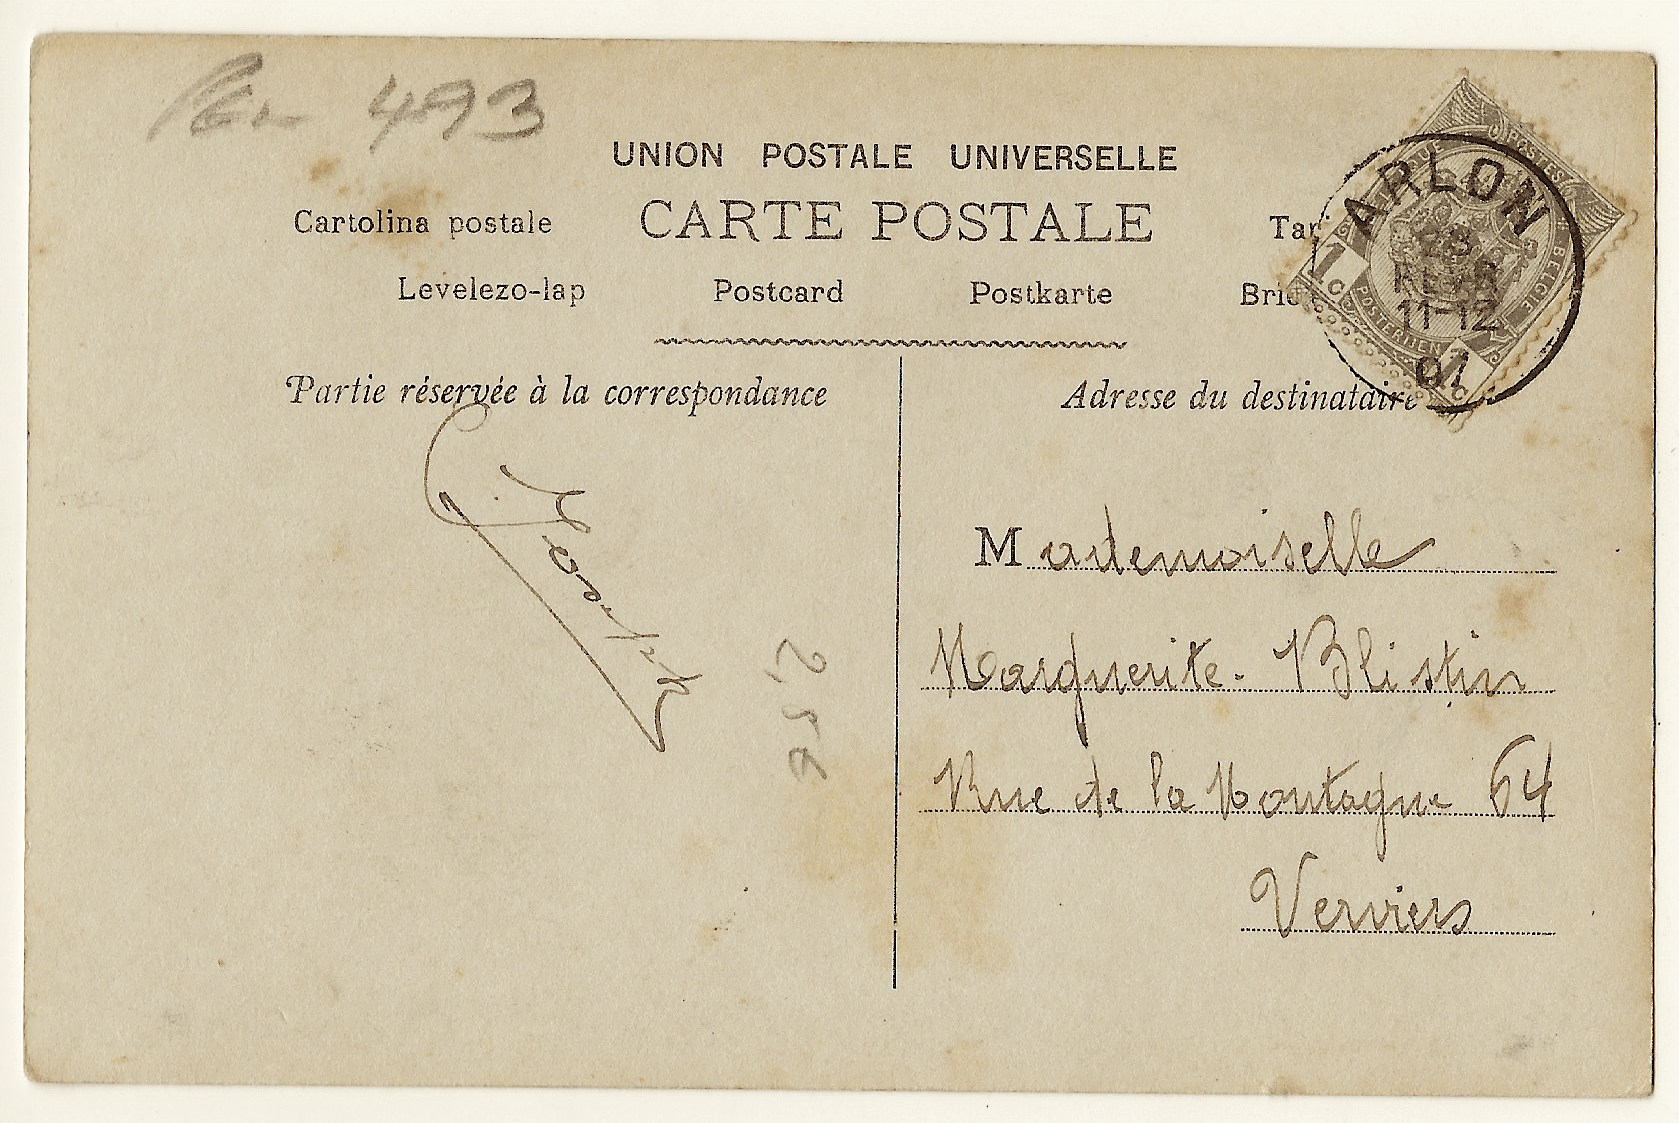 493
UNION POSTALE UNIVERSELLE
CARTE POSTALE
Cartolina postale
Levelezo-lap Postcard Postkarte
Partie réservée à la correspondance
Adresse du destinataire
ARLON
11-12
07
POSTES
BELGIE
POSTERIJEN
1c
1c
Mademoiselle
Marguerite Blistin
Rue de la Montagne 64
Verviers